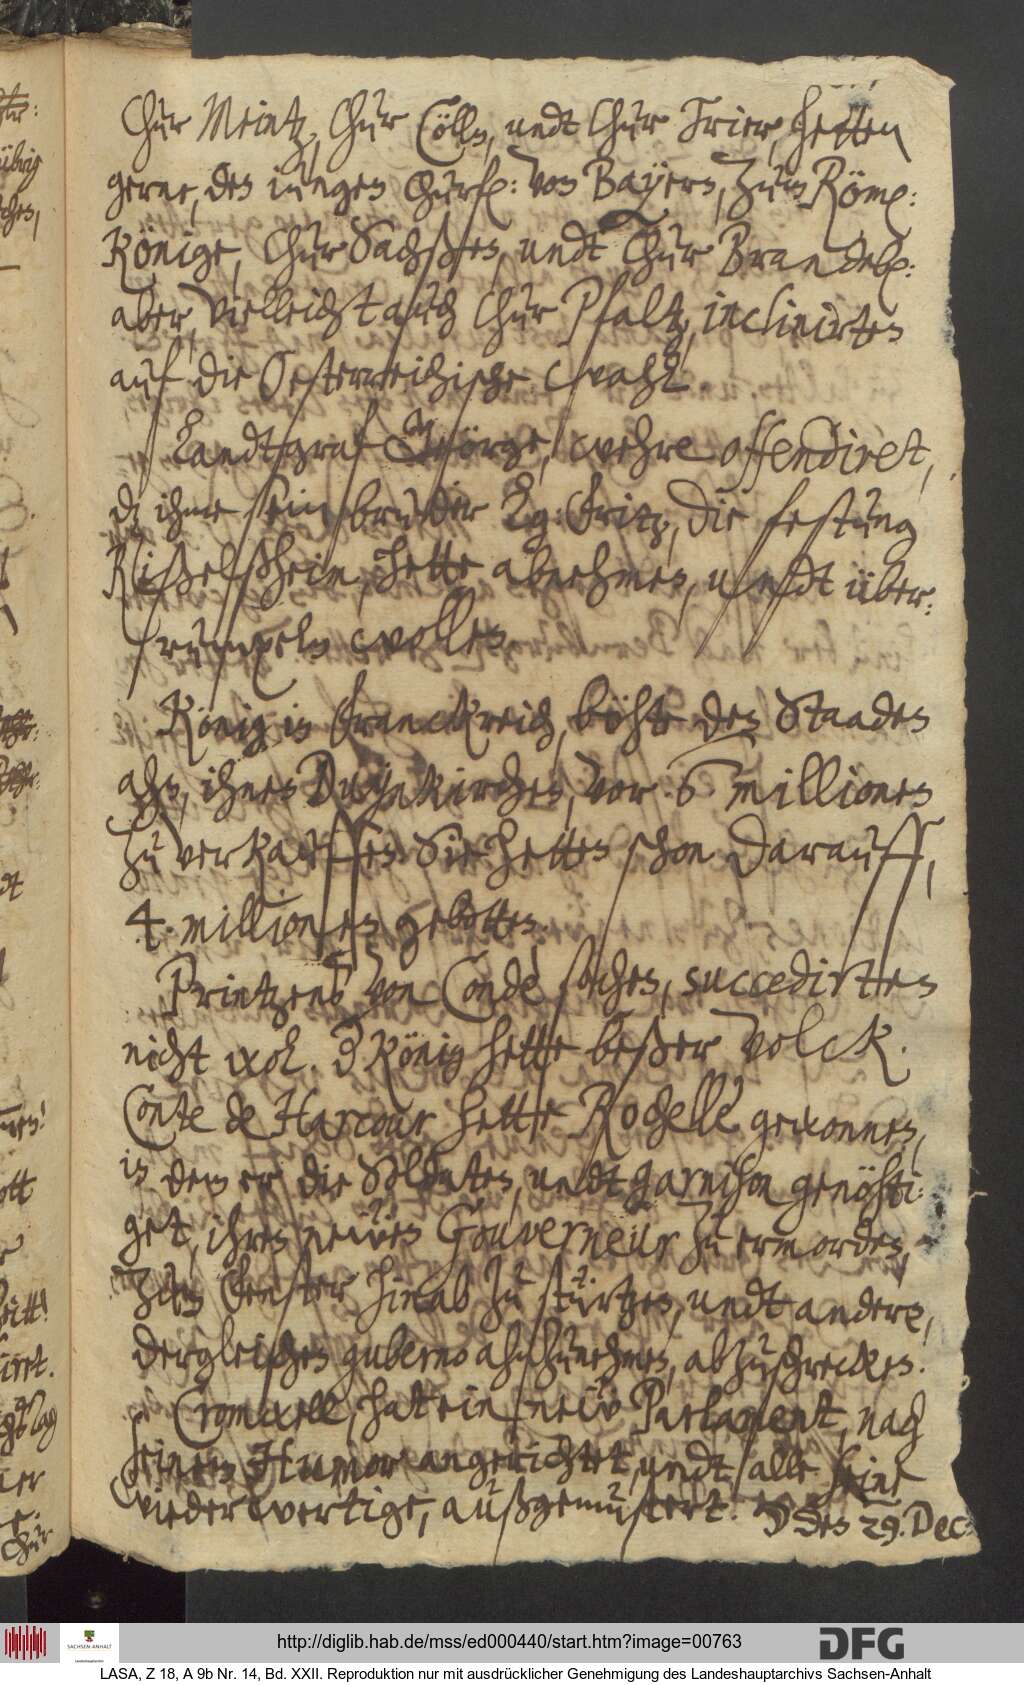 Chur Meintz, Chur Cölln, undt Chur Trier, hetten
gerne, den iungen Churf: von Bayern, zum Röm:
Könige, Chur Sachßen, undt Chur Brandeb:
aber, vielleicht auch Chur Pfaltz, inclinirten
auf die Oesterreichische wahl.
Landtgraf Geörge, wehre offendiret,
dz ihme sein bruder Lg: Fritz, die festung
Rißelßheim, hette abnehmen, undt über:
rumpeln wollen.
König in Franckreich, böhte den Staaden
ahn, ihnen Duynkirchen, vor 6 millionen
zu verkauffen. Sie hetten schon darauff,
4. millionen gebotten.
Printzens von Condè sachen, succedirten
nicht wol. d König hette beßer volck.
Conte de Harcour hette Rochelle gewonnen,
in dem er die Soldaten, undt garnison genöhti:
get, ihren neẅen Gouverneur zu ermorden,
zum fenster hinab zu stürtzen, undt andere,
dergleichen guberno ahnzunehmen, abzuschrecken.
Cromwell, hat ein neẅ Parlament, nach
seinem Humor angerichtet, undt alle seine
wiederwertige, außgemustert.
den 29. Dec:
http://diglib.hab.de/mss/ed000440/start.htm?image=00763
SACHSEN-ANHALT
DFG
LASA, Z 18, A 9b Nr. 14, Bd. XXII. Reproduktion nur mit ausdrücklicher Genehmigung des Landeshauptarchivs Sachsen-Anhalt